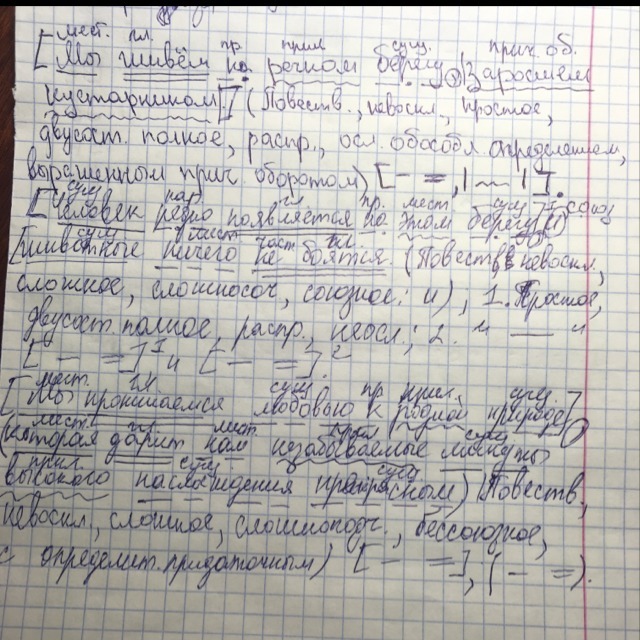 мест. гл. пр. прил. сущ. прич. об.
[Мы живём на речном берегу, |заросшем
кустарником|] (Повеств., невоскл., простое,
двусост. полное, распр., осл. обособл определением,
выраженным прич. оборотом) [— =, |~~~|].
сущ. нар. гл. пр. мест. сущ. союз
[Человек редко появляется на этом берегу]¹, (и)
сущ. мест. част. гл.
[животные ничего не боятся (Повеств., невоскл,
сложное, сложносоч, союзное: и), 1. Простое,
двусост. полное, распр., неосл.; 2. " — "
[— =]¹ и [— =].²
мест. гл. сущ. пр. прил. сущ.
[Мы проникаемся любовью к родной природе],
мест. гл. мест. прил. сущ.
(которая дарит нам незабываемые минуты
прил. сущ. сущ.
высокого наслаждения прекрасным) (Повеств,
невоскл., сложное, сложноподч., бессоюзное,
с определит. придаточным) [— =], (— =).